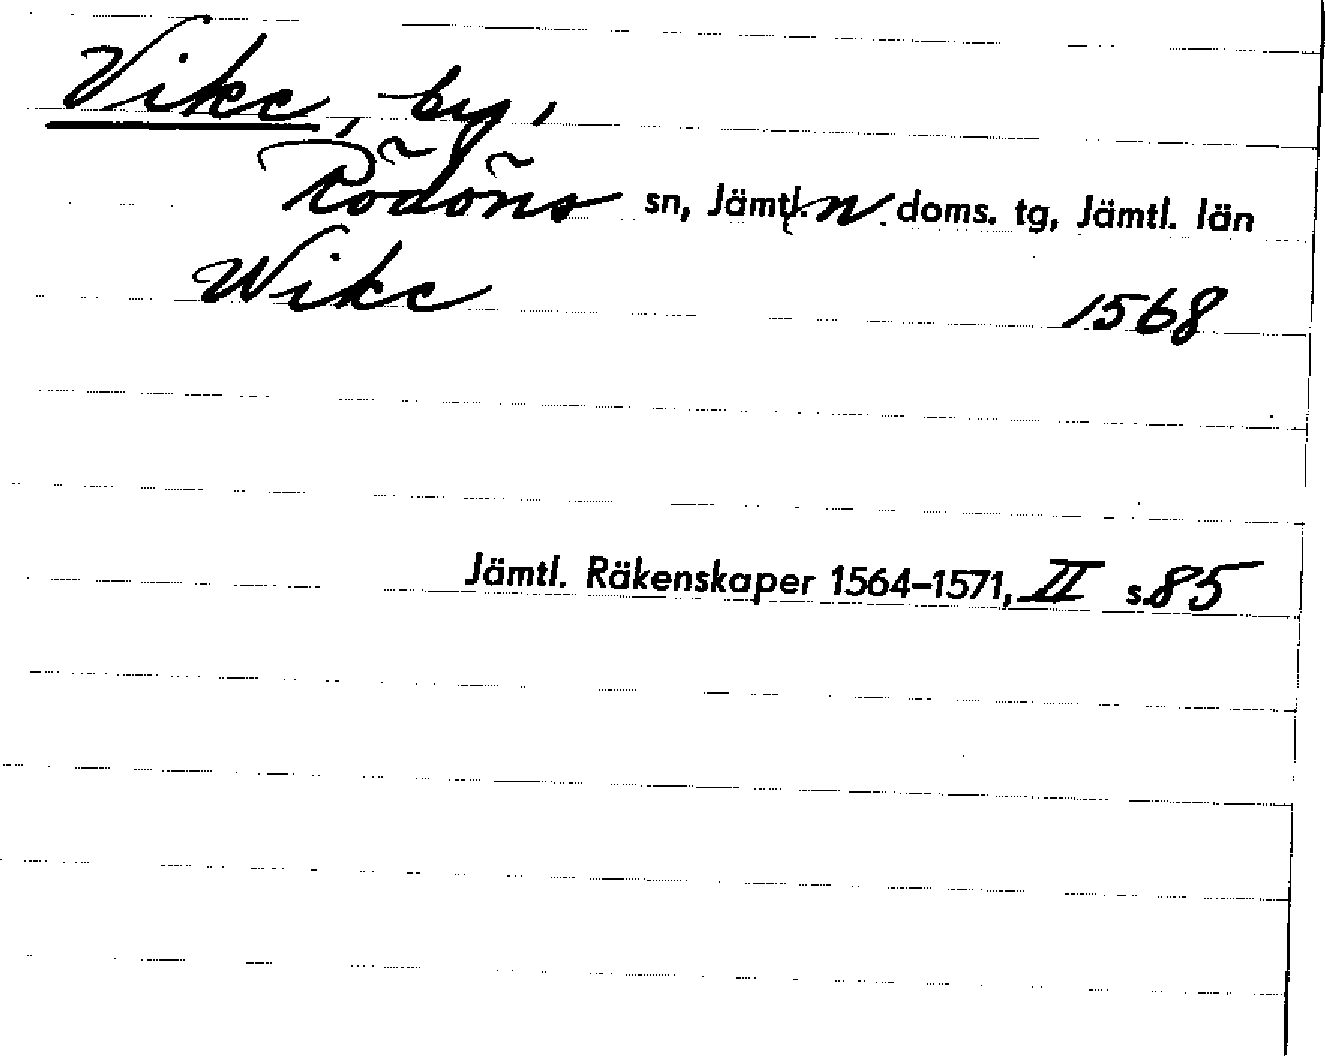 Vike, by,
Rödöns sn, Jämtl. n. doms. tg, Jämtl. län
Wike 1568
Jämtl. Räkenskaper 1564–1571, II s. 85